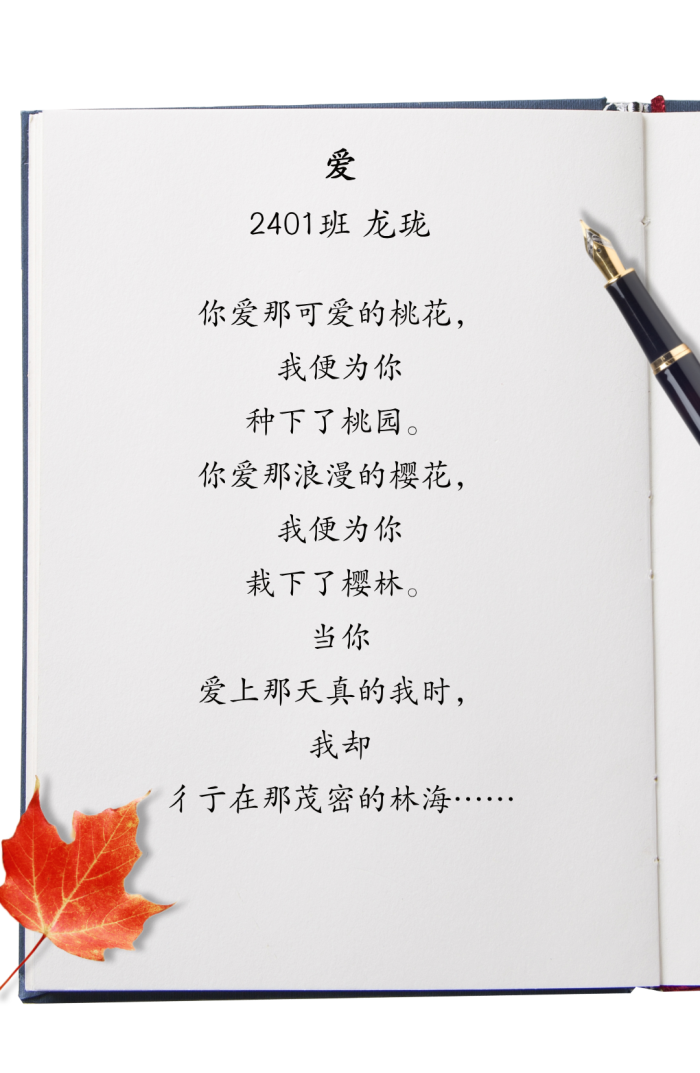 爱
2401班 龙珑
你爱那可爱的桃花，
我便为你
种下了桃园。
你爱那浪漫的樱花，
我便为你
栽下了樱林。
当你
爱上那天真的我时，
我却
彳亍在那茂密的林海……